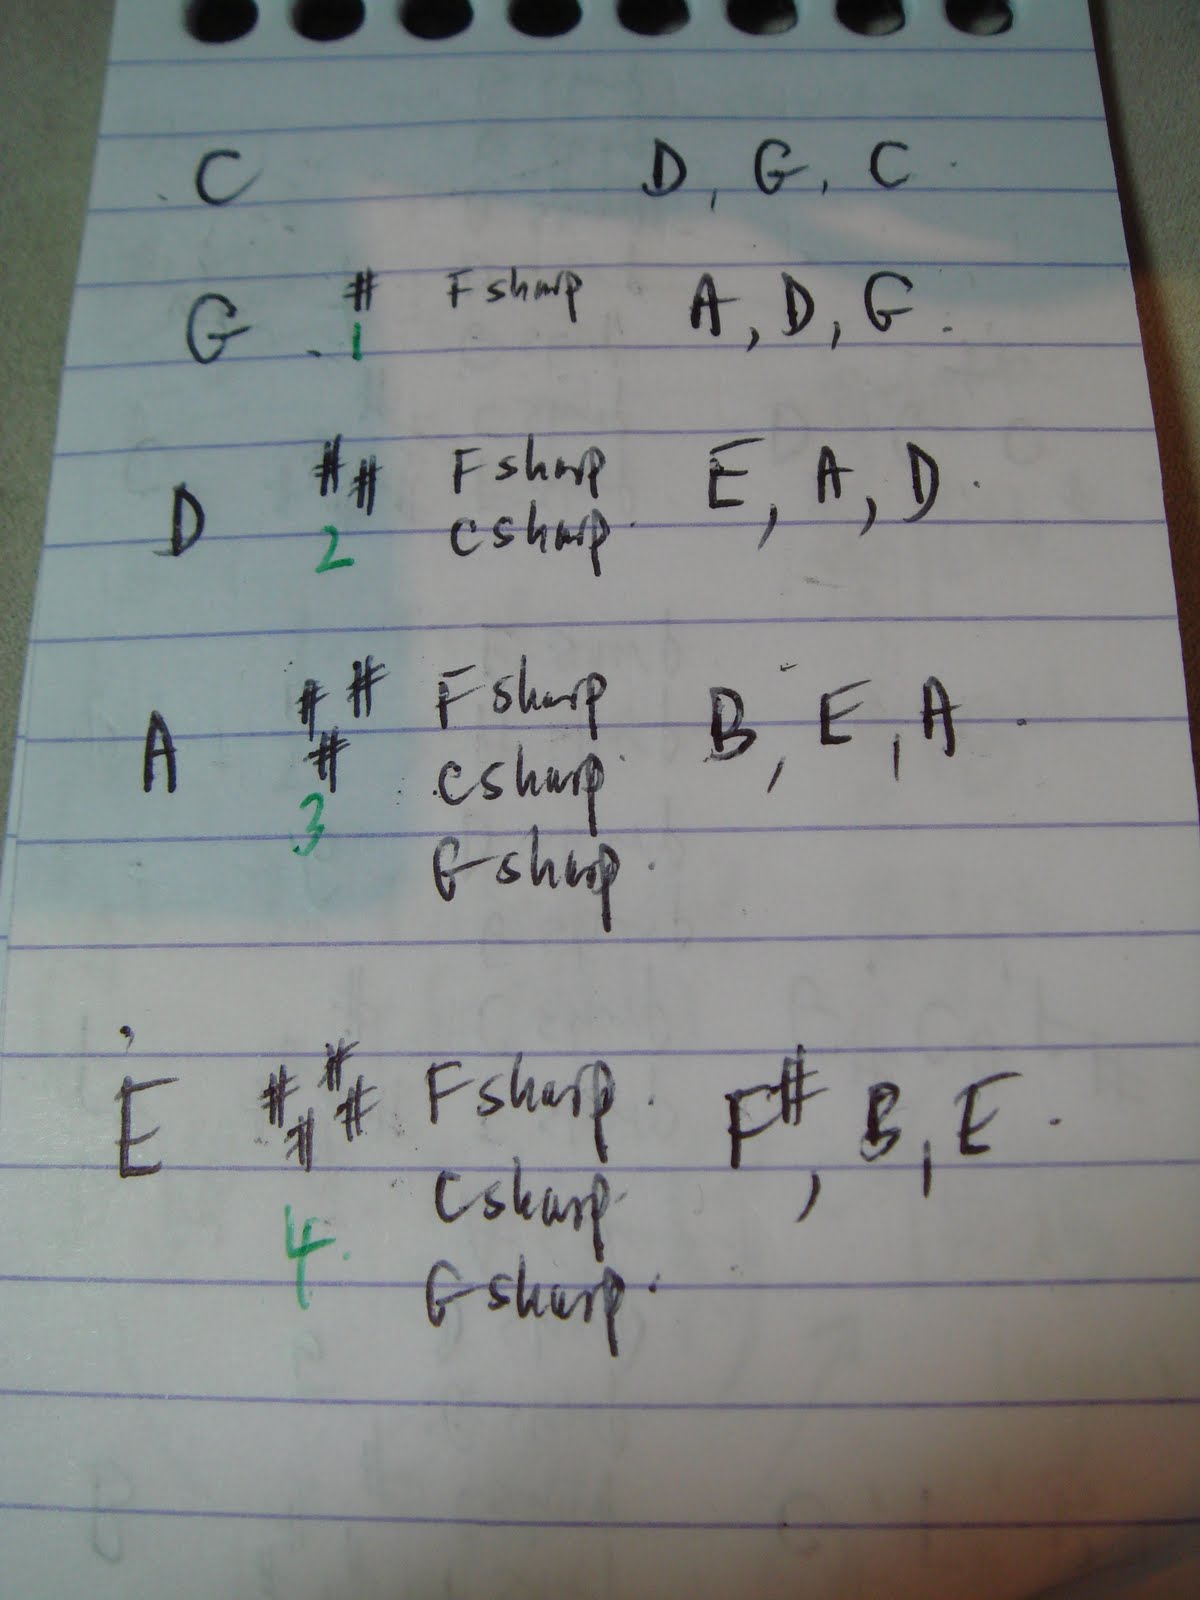 C D, G, C.
G # Fsharp A, D, G.
1
D ## Fsharp E, A, D.
2 Csharp.
A ## Fsharp B, E, A.
# Csharp.
3 Gsharp.
E #### Fsharp. F#, B, E.
4. Csharp.
Gsharp.